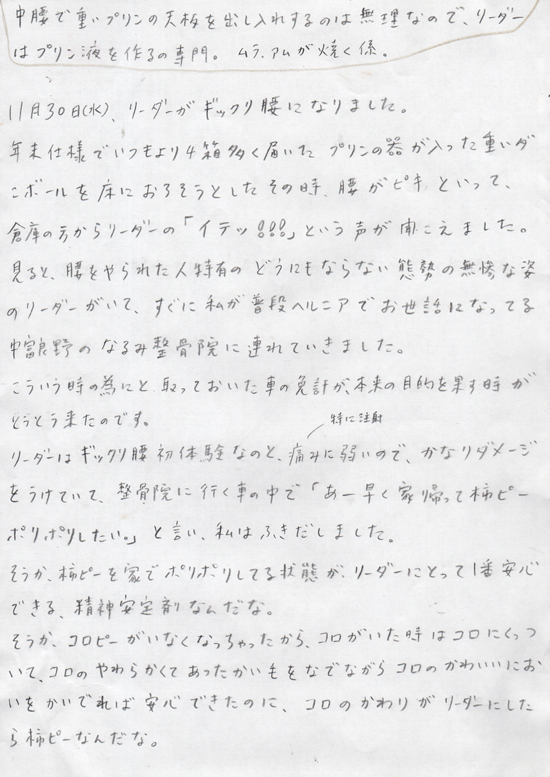 中腰で重いプリンの天板を出し入れするのは無理なので、リーダー
はプリン液を作るの専門。 ムラ、アムが焼く係。
11月30日(水)、リーダーがギックリ腰になりました。
年末仕様でいつもより4箱多く届いた プリンの器が入った重いダ
ンボールを床におろそうとしたその時、腰がピキッといって、
倉庫の方からリーダーの「イテッ!!!」という声が聞こえました。
見ると、腰をやられた人特有の どうにもならない 態勢の無惨な姿
のリーダーがいて、すぐに私が普段ヘルニアでお世話になってる
中富良野の なるみ整骨院に連れていきました。
こういう時の為にと、取っておいた車の免許が、本来の目的を果す時が
とうとう来たのです。
特に注射
リーダーはギックリ腰初体験なのと、痛みに弱いので、かなりダメージ
をうけていて、整骨院に行く車の中で「あー早く家帰って柿ピー
ポリポリしたい。」と言い、私はふきだしました。
そうか、柿ピーを家でポリポリしてる状態が、リーダーにとって1番安心
できる、精神安定剤なんだな。
そうか、コロピーがいなくなっちゃったから、コロがいた時はコロにくっつ
いて、コロのやわらかくてあったかい毛をなでながらコロのかわいいにお
いをかいでれば安心できたのに、コロのかわりがリーダーにした
ら柿ピーなんだな。